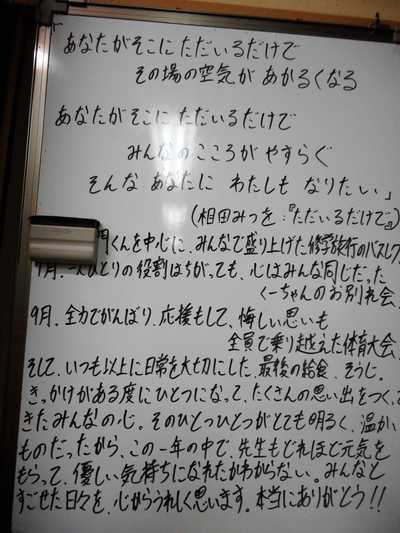 「あなたがそこにただいるだけで
その場の空気が あかるくなる
あなたがそこに ただいるだけで
みんなのこころが やすらぐ
そんな あなたに わたしも なりたい」
(相田みつを:『ただいるだけで』)
くんを中心に、みんなで盛り上げた修学旅行のバスレク
月、一人ひとりの役割はちがっても、心はみんな同じだった
くーちゃんのお別れ会
9月、全力でがんばり、応援もして、悔しい思いも
全員で乗り越えた体育大会
そして、いつも以上に日常を大切にした、最後の給食、そうじ。
きっかけがある度にひとつになって、たくさんの思い出をつくって
きたみんなの心。そのひとつひとつがとても明るく、温かい
ものだったから、この一年の中で、先生もどれほど元気を
もらって、優しい気持ちになれたかわからない。みんなと
すごせた日々を、心からうれしく思います。本当にありがとう!!